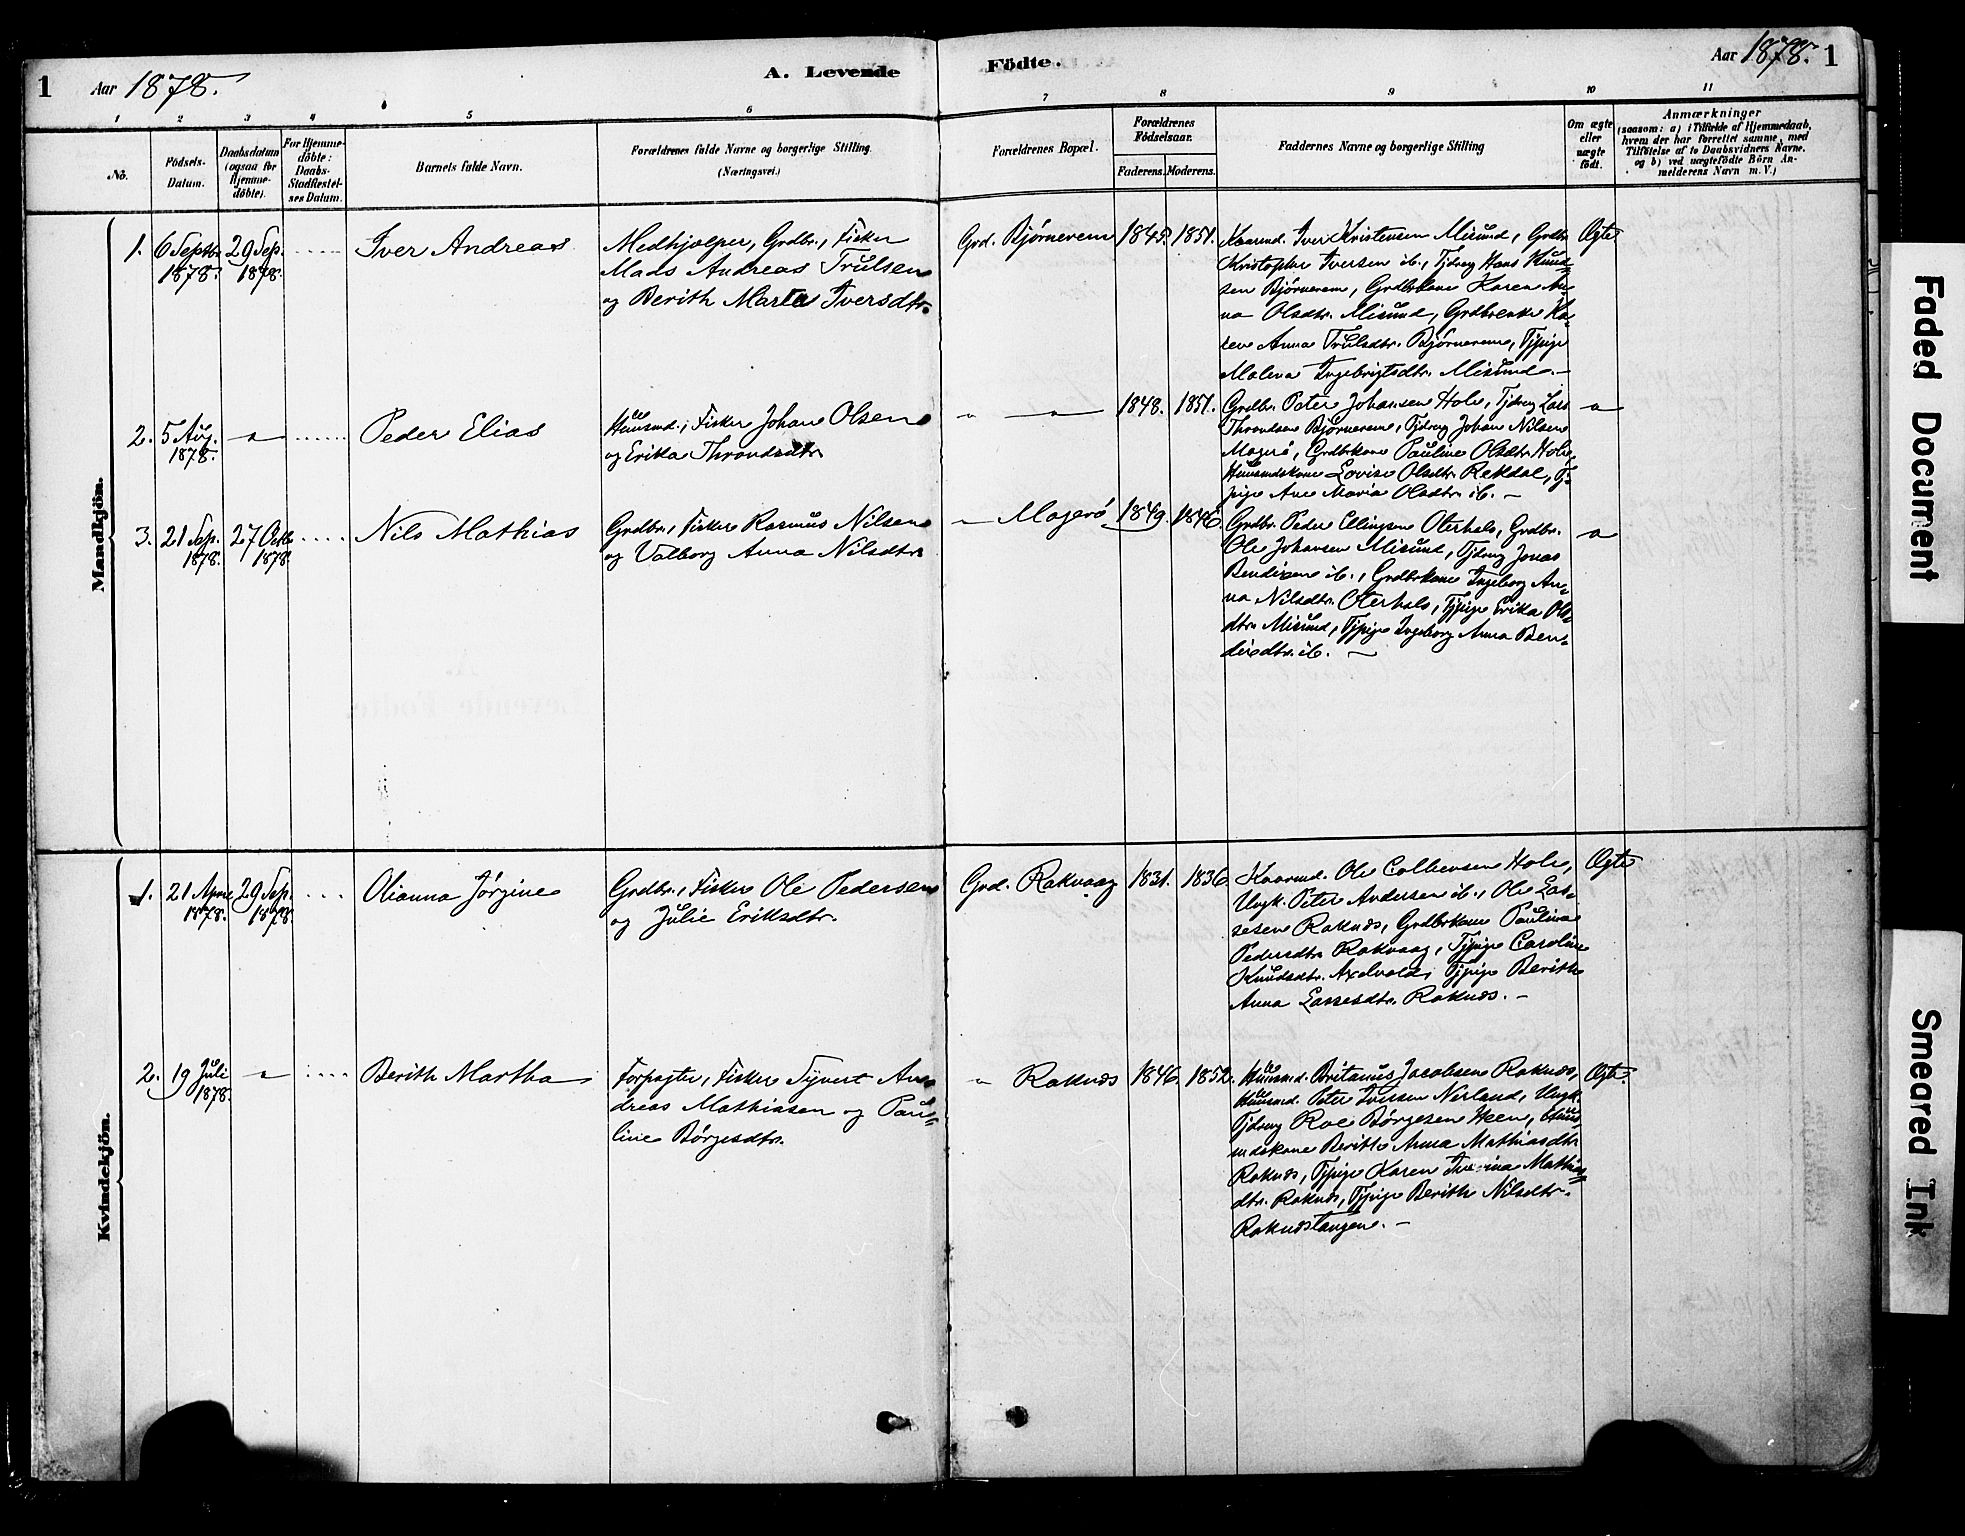 1 Aar 1878. A. Levende Födte. Aar 1878. 1
1 2 3 4 5 6 7 8 9 10 11
No.
Födsels-
Datum.
Daabsdatum
(ogsaa for
Hjemme-
döbte).
For Hjemme-
döbte:
Daabs-
Stadfæstel-
ses Datum.
Barnets fulde Navn.
Forældrenes fulde Navne og borgerlige Stilling.
(Næringsvei.)
Forældrenes Bopæl.
Forældrenes
Födselsaar.
Faderens. Moderens.
Faddernes Navne og borgerlige Stilling
Om ægte
eller
uægte
födt.
Anmærkninger
(saasom: a) i Tilfælde af Hjemmedaab,
hvem der har forrettet samme, med
Tilföielse af to Daabsvidners Navne.
og b) ved uægtefödte Börn An-
melderens Navn m. V.)
Mandkjön.
1. 6 Septbr. 1878. 29 Sep. 1878. Iver Andreas
Medhjælper, Grdbr., Fisker
Mads Andreas Trulsen
og Berith Marta Iversdtr.
Grd. Bjørnerem 1845. 1851.
Kaarmd. Iver Kristensen Misund, Grdbr.
Kristopher Iversen ib., Tjdrng Hans Knud-
sen Bjørnerem, Grdbrkone Karen An-
na Olsdtr. Misund, Grdbrenke Ka-
ren Anna Trulsdtr. Bjørnerem, Tjpige
Malena Ingebrigtsdtr. Misund. –
Ægte
2. 5 Aug. 1878. " Peder Elias
Huusmd., Fisker Johan Olsen
og Erikka Throndsdtr.
" " 1848. 1851.
Grdbr. Peter Johansen Hole, Tjdrng Lars
Throndsen Bjørnerem, Tjdrng Johan Nilsen
Magerö, Grdbrkone Pauline Olsdtr. Hole,
Huusmdskone Lovise Olsdtr. Rekdal, Tj-
pige Ane Maria Olsdtr. ib. –
"
3. 21 Sep. 1878. 27 Octb. 1878. Nils Mathias
Grdbr., Fisker Rasmus Nilsen
og Valborg Anna Nilsdtr.
" Magerö 1849. 1846.
Grdbr. Peder Ellingsen Oterhals, Grdbr.
Ole Johansen Misund, Tjdrng Jonas
Bendixen ib., Grdbrkone Ingeborg An-
na Nilsdtr. Oterhals, Tjpige Erika Ols-
dtr. Misund, Tjpige Ingeborg Anna Ben-
dixdtr. ib. –
"
Kvindekjön.
1. 21 April 1878. 29 Sep. 1878. Olianna Jørgine
Grdbr., Fisker Ole Pedersen
og Julie Eriksdtr.
Grd. Rakvaag 1831. 1836.
Kaarmd. Ole Colbensen Hole,
Ungk. Peter Andersen ib., Ole Las-
sesen Raknæs, Grdbrkone Paulina
Pedersdtr. Rakvaag, Tjpige Caroline
Knudsdtr. Axelvold, Tjpige Berith
Anna Lassesdtr. Raknæs. –
Ægte
2. 19 Juli 1878. " Berith Martha
Forpagter, Fisker Syvert An-
dreas Mathiasen og Pau-
line Börgesdtr.
" Raknæs 1846. 1852.
Huusmd. Britanus Jacobsen Raknæs,
Huusmd. Peter Iversen Nerland, Ungk.
Tjdrng Roe Børgesen Heen, Huus-
mdskone Berith Anna Mathiasdtr.
Raknæs, Tjpige Karen Mathias-
dtr. Raknæs, Tjpige Berith Nilsdtr.
Raknæstangen. –
Ægte.
Faded Document
Smeared Ink